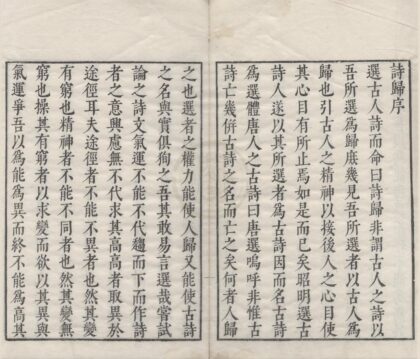 詩歸序
選古人詩而命曰詩歸非謂古人之詩以
吾所選爲歸庶幾見吾所選者以古人爲
歸也引古人之精神以接後人之心目使
其心目有所止焉如是而已矣昭明選古
詩人遂以其所選者爲古詩因而名古詩
爲選體唐人之古詩曰唐選嗚呼非惟古
詩亡幾併古詩之名而亡之矣何者人歸
之也選者之權力能使人歸又能使古詩
之名與實俱狥之吾其敢易言選哉嘗試
論之詩文氣運不能不代趨而下而作詩
者之意興慮無不代求其高高者取異於
途徑耳夫途徑者不能不異者也然其變
有窮也精神者不能不同者也然其變無
窮也操其有窮者以求變而欲以其異與
氣運爭吾以爲能爲異而終不能爲高其